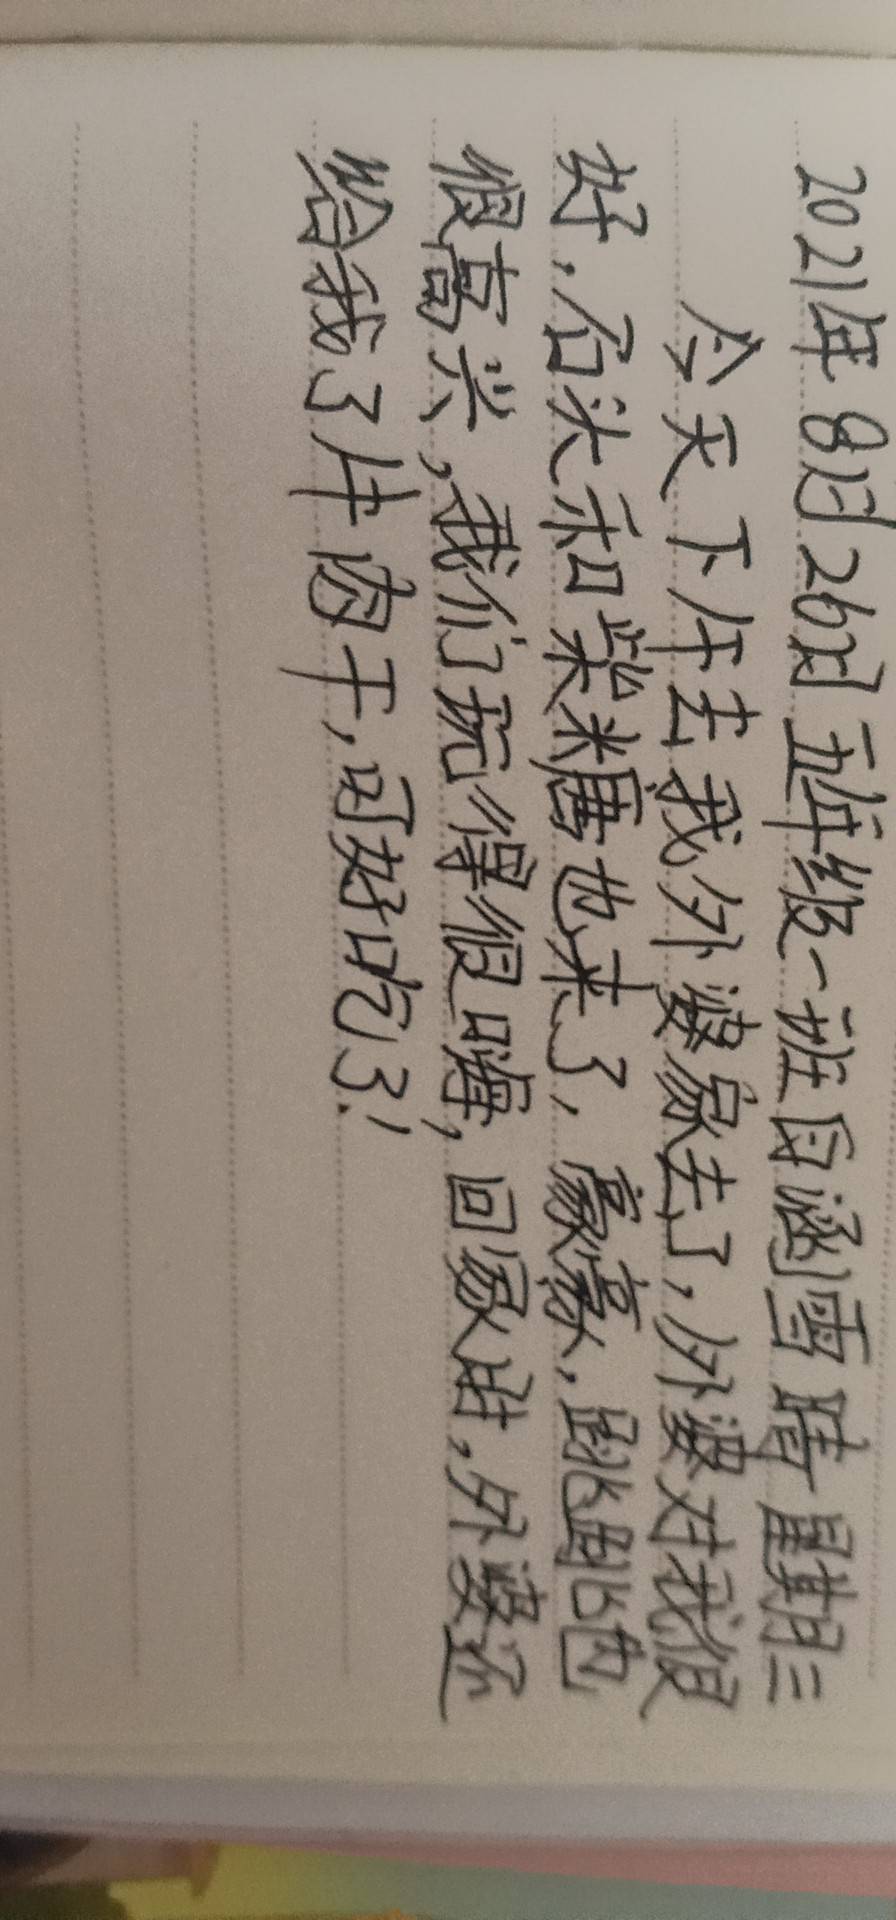 2021年8月26日 五年级一班 吕涵雪 晴 星期三
今天下午去我外婆家去了,外婆对我很
好,石头和柴米糖也来了,豪豪,跳跳也
很高兴,我们玩得很嗨,回家时,外婆还
给我了牛肉干,可好吃了!